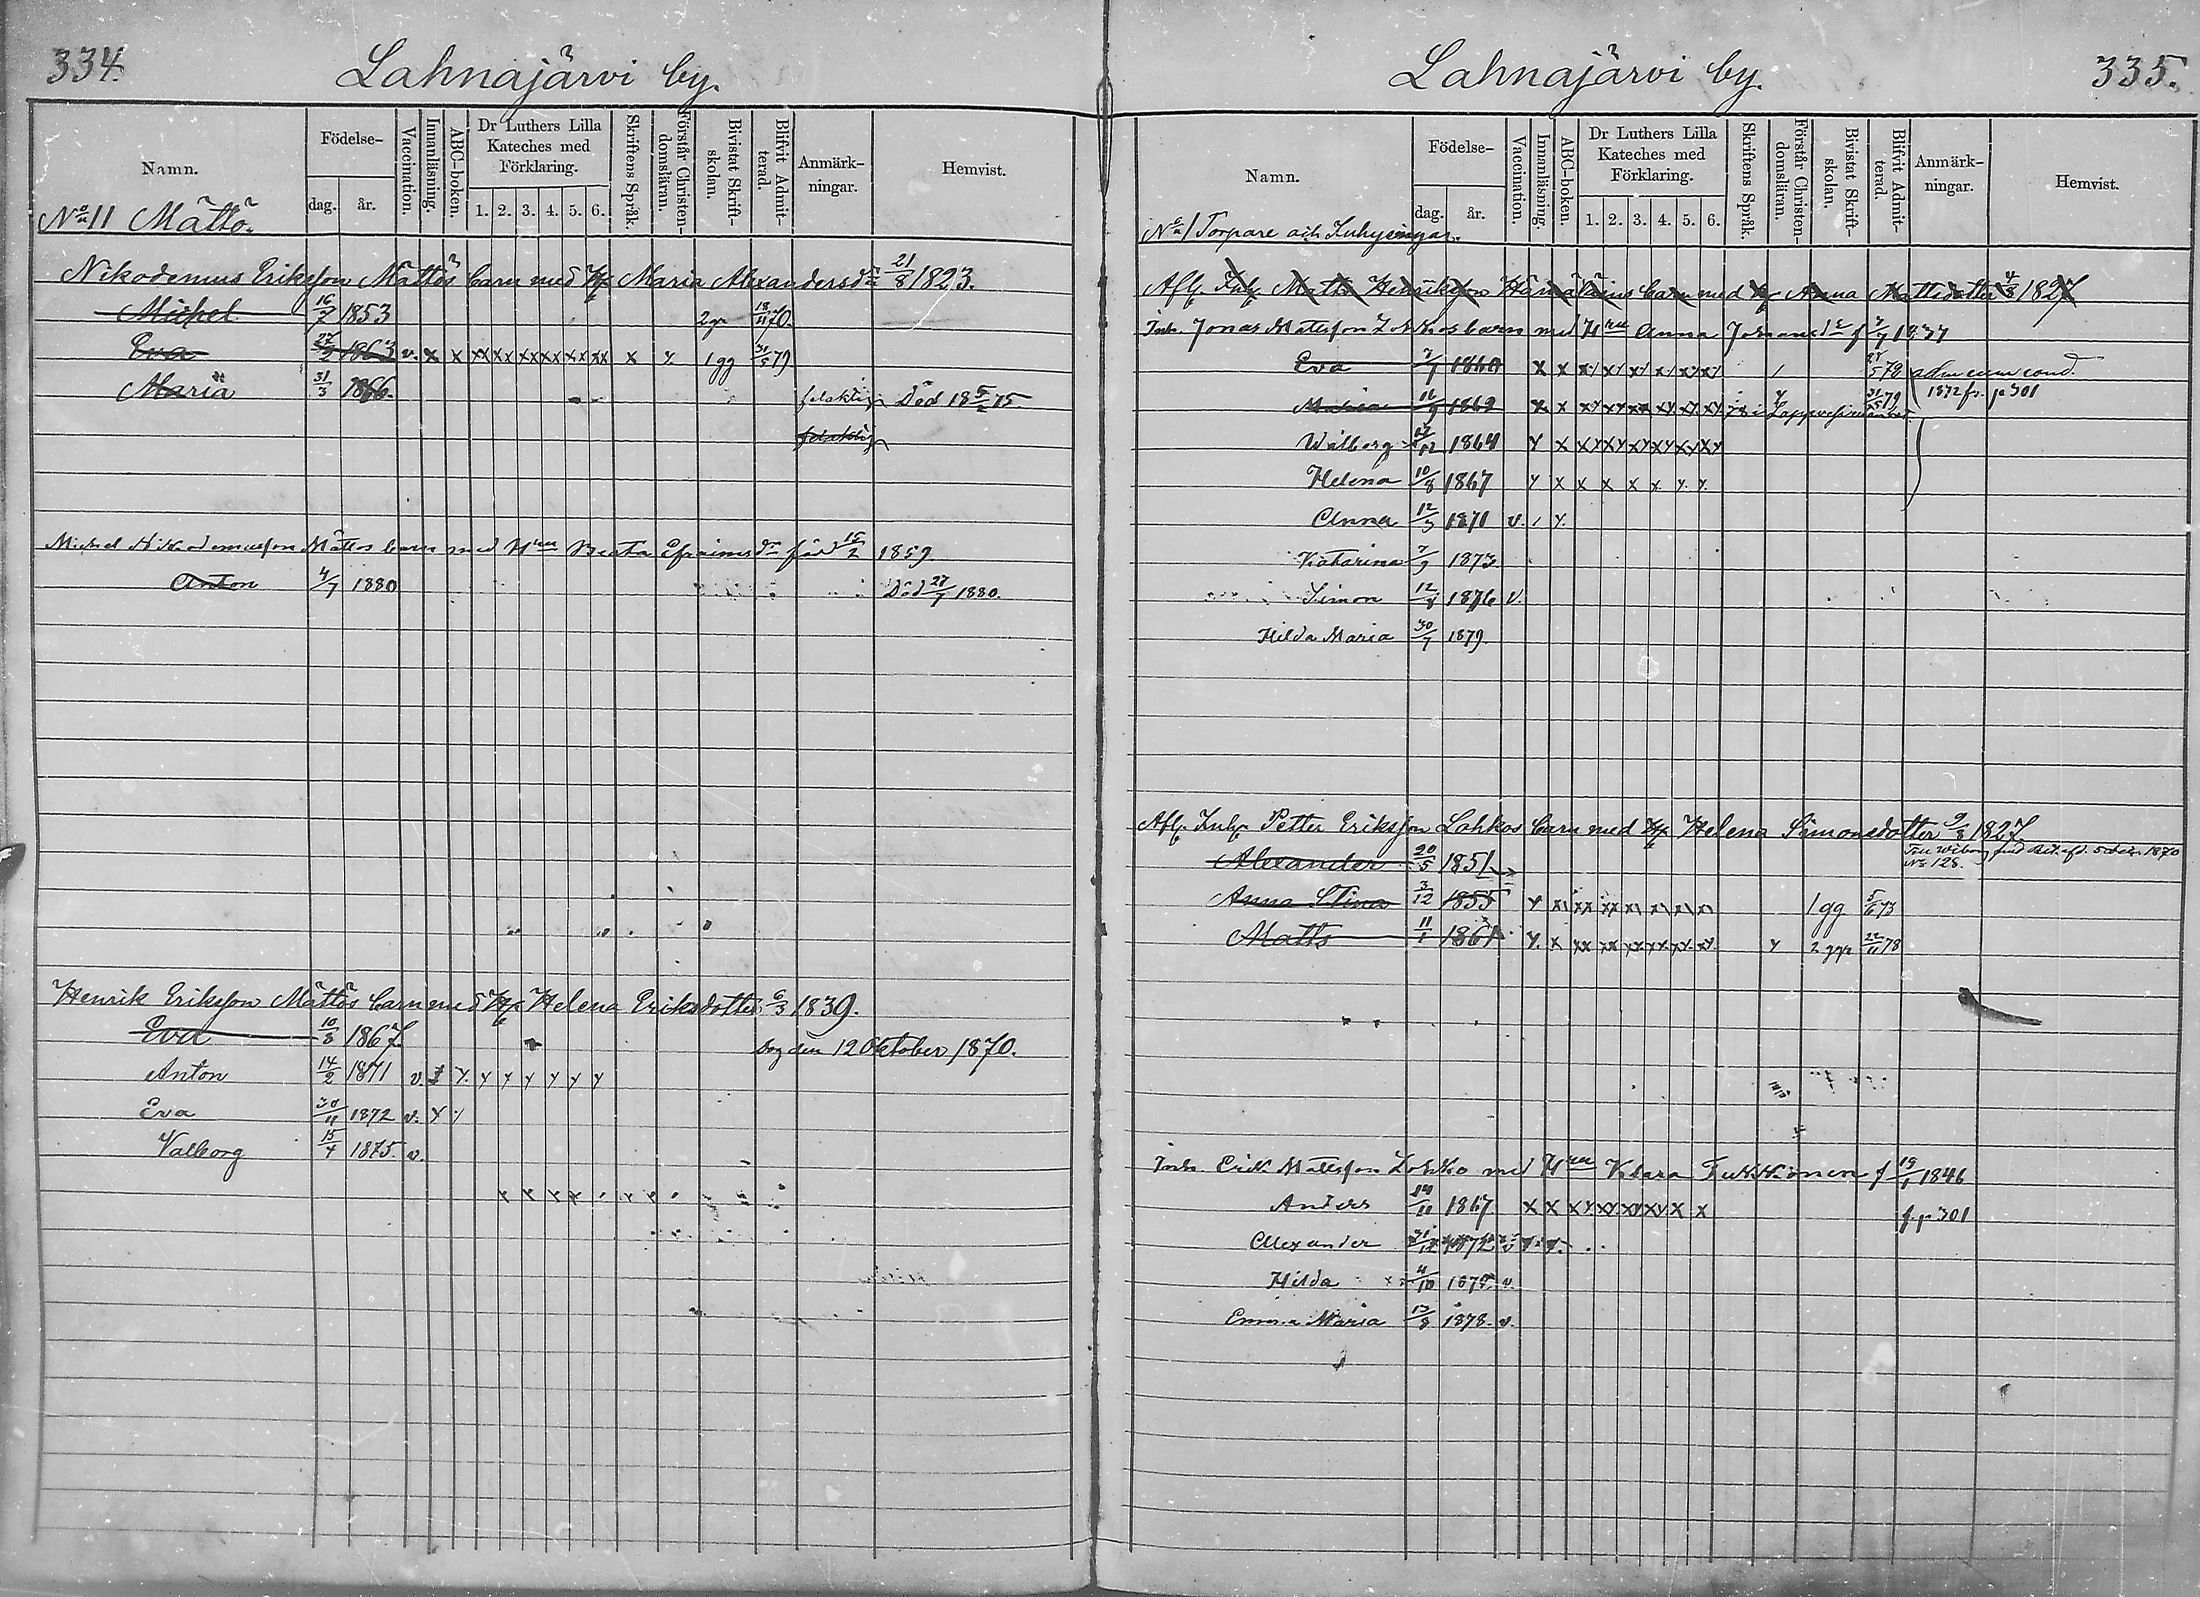 334.
Lahnajärvi by.
Namn.
Födelse-
dag. år.
Vaccination.
Innanläsning.
ABC-boken.
Dr Luthers Lilla Kateches med Förklaring.
1. 2. 3. 4. 5. 6.
Skriftens Språk.
Förstår Christen-domsläran.
Bivistat Skrift-skolan.
Blifvit Admit-terad.
Anmärk-ningar.
Hemvist.
No 11 Mättö.
Nikodemus Eriksson Mättös barn med H. Maria Alexandersdr 21/8 1823.
Michel 16/7 1853 2 gr 18/11 70.
Eva 27/3 1863 v. x x xx xx xx xx xx xx x y. 1 gg 31/5 79
Maria 31/3 1866. Död 18 5/2 75.
Michel Nikodemusson Mättös barn med Hru Beata Efraimsdr född 15/2 1859
Anton 4/7 1880 Död 27/7 1880.
Henrik Eriksson Mättös barn med H. Helena Eriksdotter 6/3 1839.
Eva 10/8 1867 Dog den 12 Oktober 1870.
Anton 14/2 1871 v. x y. y y y y y y
Eva 30/11 1872 v. y
Valborg 15/4 1875. v.
Lahnajärvi by.
335.
Namn.
Födelse-
dag. år.
Vaccination.
Innanläsning.
ABC-boken.
Dr Luthers Lilla Kateches med Förklaring.
1. 2. 3. 4. 5. 6.
Skriftens Språk.
Förstår Christen-domsläran.
Bivistat Skrift-skolan.
Blifvit Admit-terad.
Anmärk-ningar.
Hemvist.
No 1 Torpare och Inhysingar.
Afl. Inh. Matts Henriksson barn med H. Anna Mattsdotter 4/8 1827
Inh. Jonas Matsson Lohkos barn med Hru Anna Johansdr f 3/7 1837
Eva 7/1 1860 x x 1 78 adm cum cond.
1869 79 1872 fr. p 301
Walborg 1864 y x xy xy xy xy xy xy
Helena 10/8 1867 y x x x x x y. y.
Anna 12/3 1871 v. y.
Katarina 7/9 1873
Simon 12/8 1876 v.
Hilda Maria 30/7 1879.
Afl. Inh. Petter Eriksson Lohkos barn med H. Helena Simonsdotter 9/8 1827
Alexander 20/5 1851 1870 No 128.
Anna Stina 3/12 1855 1 gg 5/6 73
Matts 11/1 1861 y x y 2 ggr 22/11 78
Inh. Erik Matsson Lohko med Hru Klara f 19/1 1846
Anders 14/11 1867 x x xy xy xy xy x x f. p 301
Alexander 31/12 1872 v
Hilda 4/10 1875. v.
Emma Maria 13/8 1878. v.